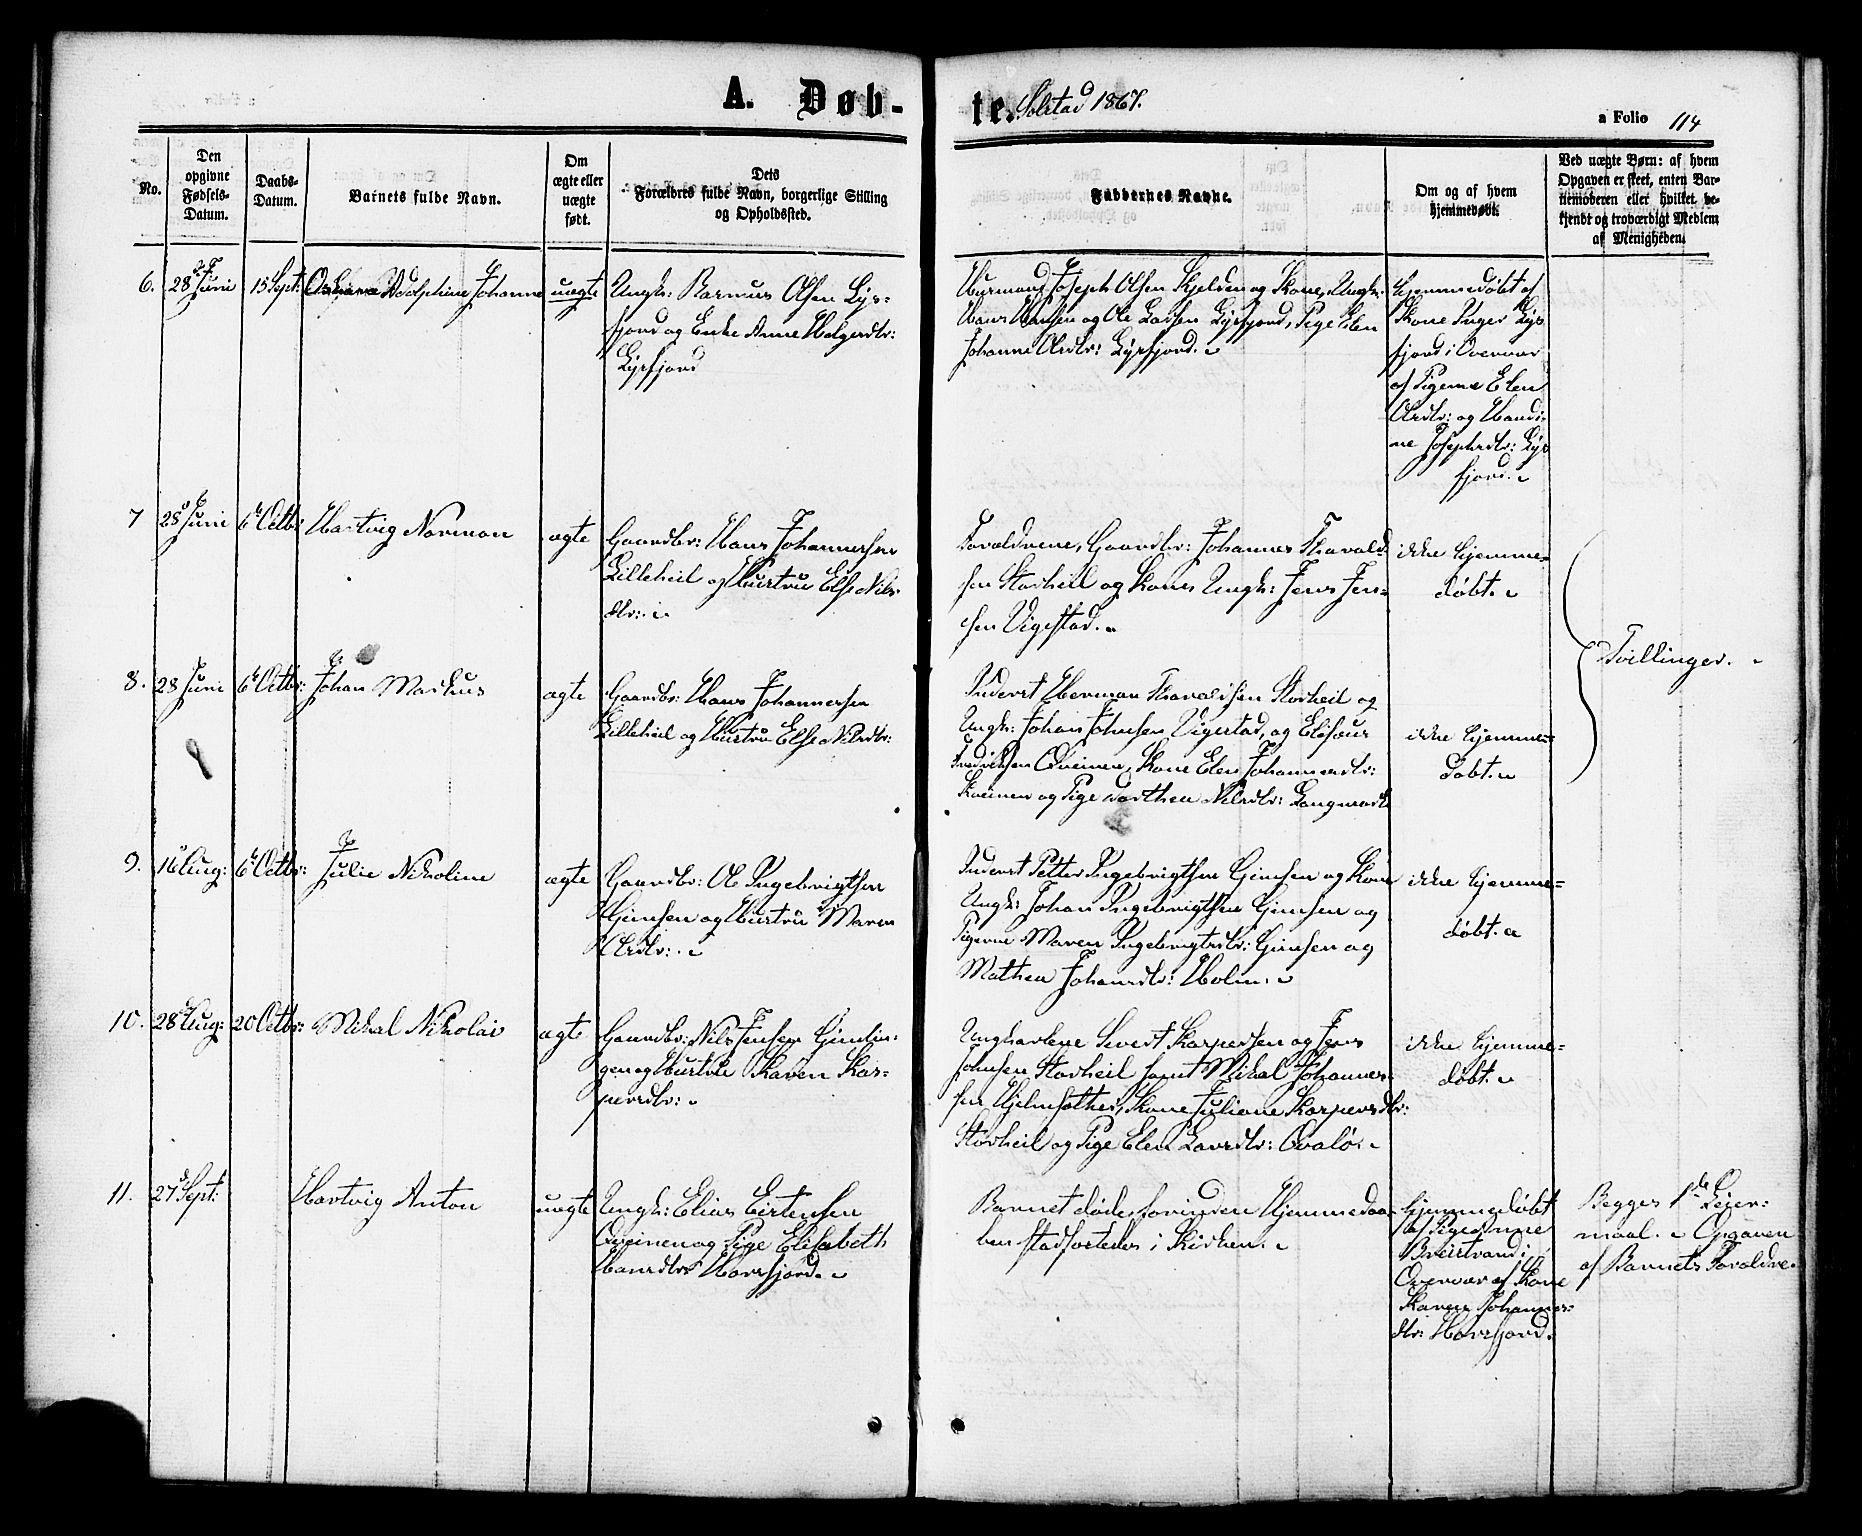 A. Døb-
te. Solstad 1867.
a Folio 114
No.
Den
opgivne
Fødsels-
Datum.
Daabs-
Datum.
Barnets fulde Navn.
Om
ægte eller
uægte
født.
Dets
Forældres fulde Navn, borgerlige Stilling
og Opholdssted.
Faddernes Navne.
Om og af hvem
hjemmedøbt.
Ved uægte Børn: af hvem
Opgaven er skeet, enten Bar-
nemoderen eller hvilket be-
kjendt og troværdigt Medlem
af Menigheden.
6.
28 Juni
15 Sept:
Adolphine Johanne
uægte
Ungk: Rasmus Olsen Lys-
fjord og Enke Anne Helgesdtr:
Lysfjord
Huusmand Joseph Olsen Kjelden og Kone, Ungk:
Hans Hansen og Ole Larsen Lysfjord, Pige Elen
Johanne Olsdtr: Lysfjord.
hjemmedøbt af
Kone Inger Lys
fjord i Overvær
af Pigerne Elen
Olsdtr: og Handi-
ne Josephsdtr: Lys
fjord.
7
28 Juni
6 Octbr:
Hartvig Norman
ægte
Gaardbr: Hans Johannessen
Lilleheil og Hustru Else Nils
dtr:
Forældrene, Gaardbr: Johannes Thorvald-
sen Storheil og Kone, Ungk: Jens Jen-
sen Vigestad.
ikke hjemme-
døbt.
Tvillinger.
8.
28 Juni
6 Octbr:
Johan Markus
ægte
Gaardbr: Hans Johannessen
Lilleheil og Hustru Else Nilsdtr:
Inderst Herman Thoralfsen Storheil og
Ungk: Johan Johnsen Vigestad, og Elisæus
Fredriksen Qveinen, Kone Elen Johannesdtr:
Kveinen og Pige Dorthea Nilsdtr: Langnæs
ikke hjemme-
døbt.
9.
16 Aug:
6 Octbr:
Julie Nikoline
ægte
Gaardbr: Ole Ingebrigtsen
Gimsen og Hustru Maren
Olsdtr:
Inderst Petter Ingebrigtsen Gimsen og Kone
Ungk: Johan Ingebrigtsen Gimsen og
Pigerne Maren Ingebrigtsdtr: Gimsen og
Mathea Johansdtr: Holm.
ikke hjemme-
døbt.
10.
28 Aug:
20 Octbr:
Mikal Nikolai
ægte
Gaardbr: Nils Jensen Gimlin-
gen og Hustru Karen Kas-
persdtr:
Ungkarlene Severt Kaspersen og Jens
Johnsen Storheil samt Mikal Johannes-
sen Kone Juliane Kaspersdtr:
Storheil og Pige Elen Larsdtr: Qvalø.
ikke hjemme-
døbt.
11.
27 Sept:
Hartvig Anton
uægte
Ungk: Elias Eistensen
Qveinen og Pige Elisabeth
Hansdtr: Horsfjord.
Barnet døde forinden Hjemmedaa-
ben stadfæstedes i Kirken.
hjemmedøbt
af Pige Anne
Breistrand i
Overvær af Kone
Karen Johannes-
dtr: Horsfjord.
Begges 1ste Leier-
maal. Opgaven
af Barnets Forældre.